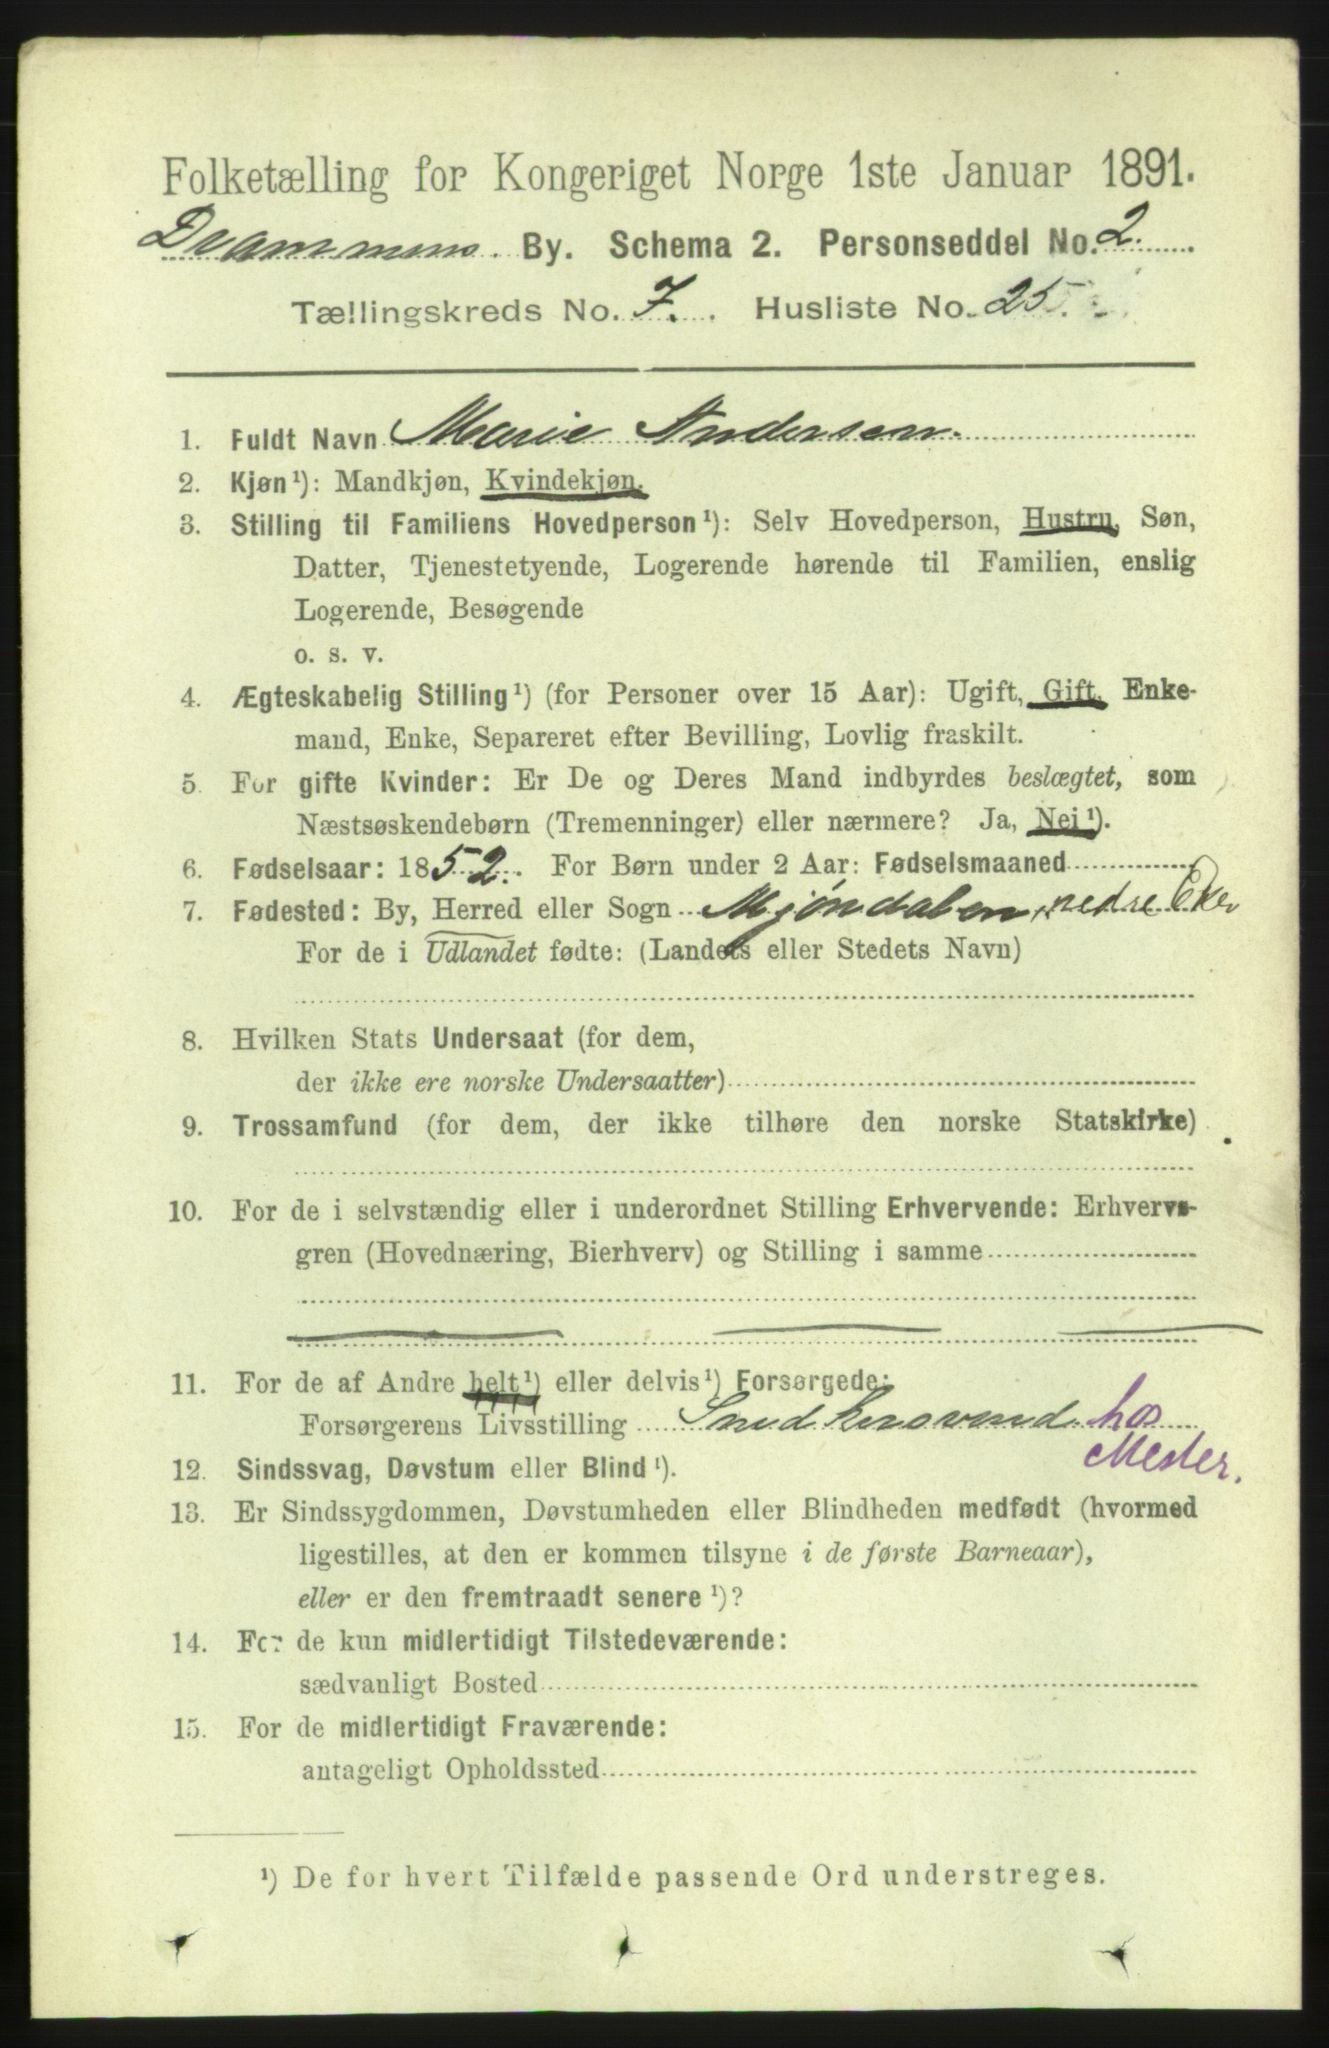 Folketælling for Kongeriget Norge 1ste Januar 1891.
Drammens By. Schema 2. Personseddel No. 2.
Tællingskreds No. 7. Husliste No. 25.
1. Fuldt Navn Marie Andersen.
2. Kjøn¹): Mandkjøn, Kvindekjøn.
3. Stilling til Familiens Hovedperson¹): Selv Hovedperson, Hustru, Søn,
Datter, Tjenestetyende, Logerende hørende til Familien, enslig
Logerende, Besøgende
o. s. v.
4. Ægteskabelig Stilling¹) (for Personer over 15 Aar): Ugift, Gift, Enke-
mand, Enke, Separeret efter Bevilling, Lovlig fraskilt.
5. For gifte Kvinder: Er De og Deres Mand indbyrdes beslægtet, som
Næstsøskendebørn (Tremenninger) eller nærmere? Ja, Nei¹).
6. Fødselsaar: 1852. For Børn under 2 Aar: Fødselsmaaned
7. Fødested: By, Herred eller Sogn Mjøndalen, nedre Eker
For de i Udlandet fødte: (Landets eller Stedets Navn)
8. Hvilken Stats Undersaat (for dem,
der ikke ere norske Undersaatter)
9. Trossamfund (for dem, der ikke tilhøre den norske Statskirke)
10. For de i selvstændig eller i underordnet Stilling Erhvervende: Erhvervs-
gren (Hovednæring, Bierhverv) og Stilling i samme
11. For de af Andre helt¹) eller delvis¹) Forsørgede:
Forsørgerens Livsstilling Snedkersvend hos
Mester.
12. Sindssvag, Døvstum eller Blind¹).
13. Er Sindssygdommen, Døvstumheden eller Blindheden medfødt (hvormed
ligestilles, at den er kommen tilsyne i de første Barneaar),
eller er den fremtraadt senere¹)?
14. For de kun midlertidigt Tilstedeværende:
sædvanligt Bosted
15. For de midlertidigt Fraværende:
antageligt Opholdssted
¹) De for hvert Tilfælde passende Ord understreges.